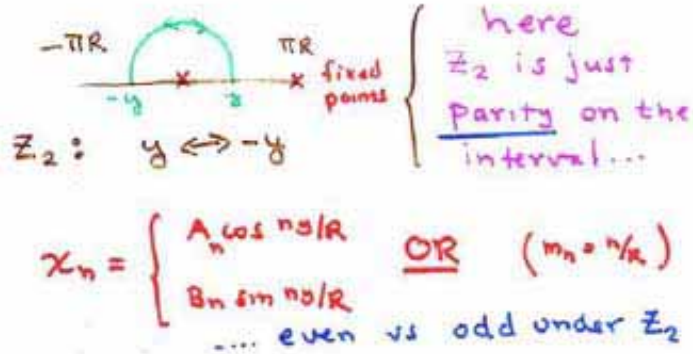 -πR πR
-y y
fixed points
here
Z₂ is just
parity on the
interval...
Z₂: y ↔ -y
χₙ = { Aₙ cos ny/R
OR (mₙ = n/R)
Bₙ sin ny/R
.... even vs odd under Z₂